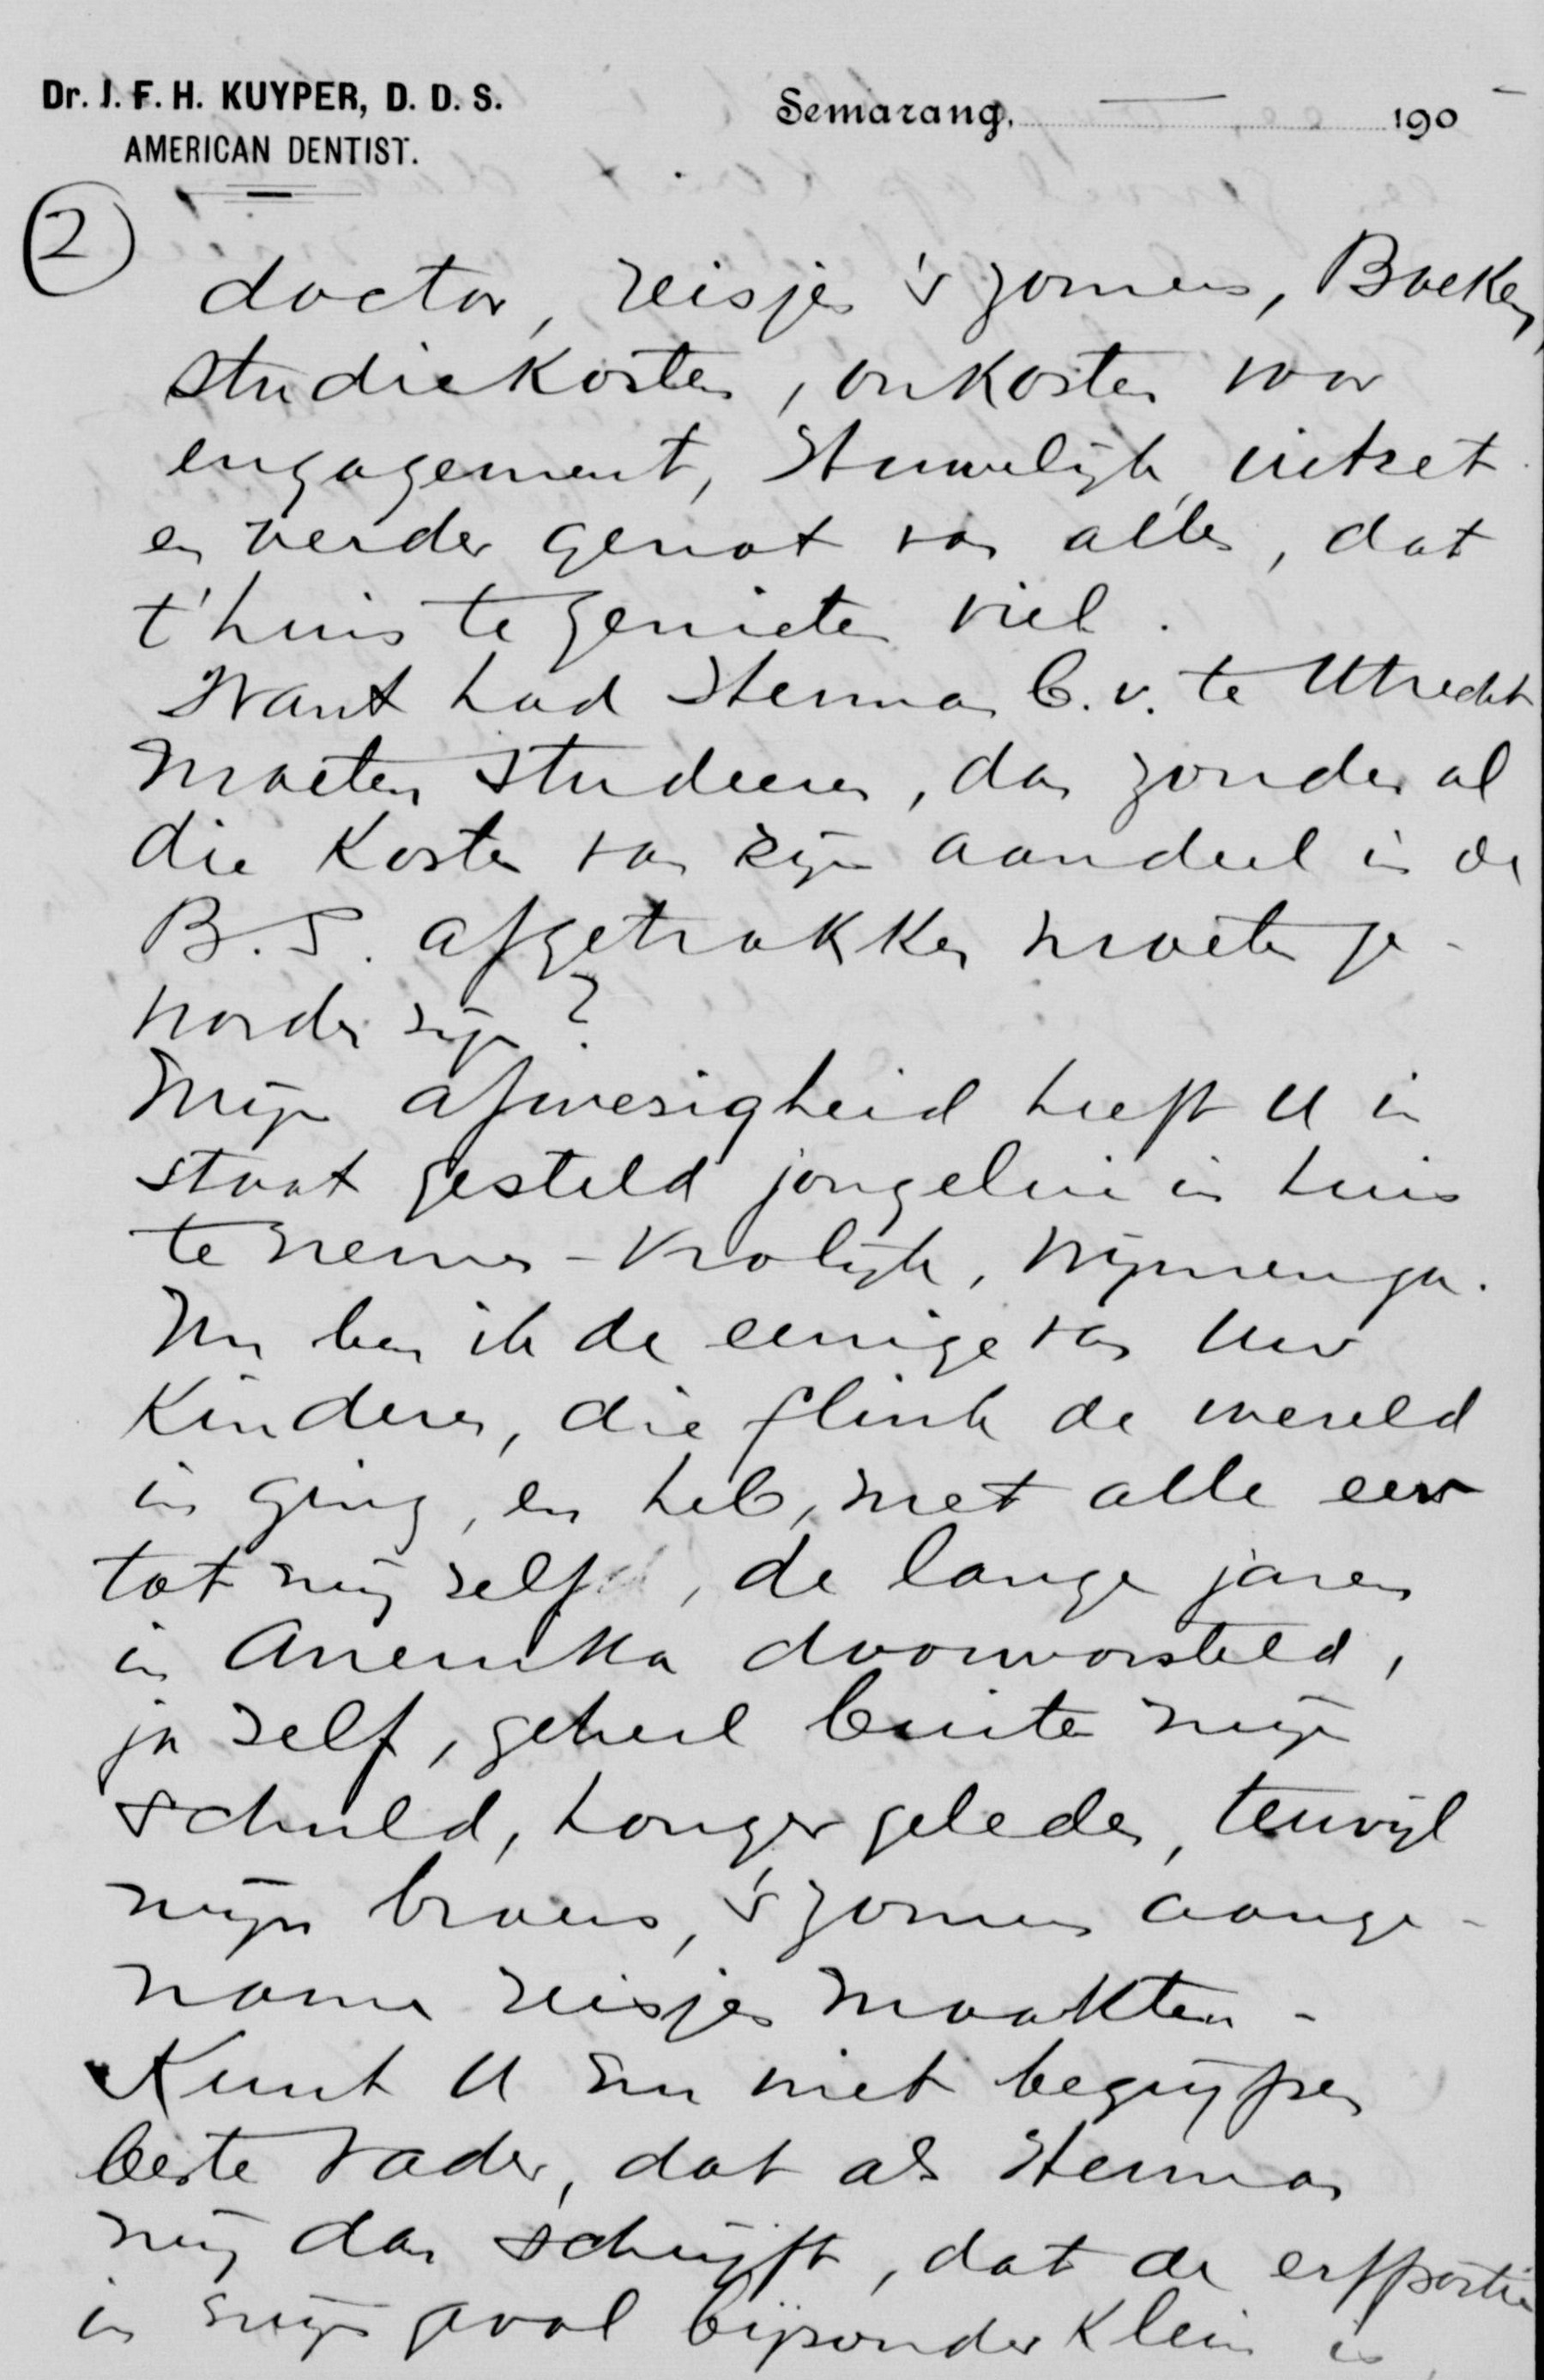 Dr. J. F. H. KUYPER, D. D. S.
AMERICAN DENTIST.
Semarang, 190
2
doctor, reisjes 's zomers, Boeken,
studiekosten, onkosten voor
engagement, Huwelijk, uitzet
en verder genot van alles, dat
t'huis te genieten viel.
Want had Herman b.v. te Utrecht
moeten studeeren, dan zouden al
die kosten van zijn aandeel in de
B.S. afgetrokken moeten ge-
worden zijn?
Mijn afwezigheid heeft U in
staat gesteld jongelui in huis
te nemen - Vrolijk, Wijmenga.
Nu ben ik de eenige van Uw
Kinderen, die flink de wereld
in ging, en heb, met alle eer
tot mij zelf, de lange jaren
in Amerika doorworsteld,
ja zelf, geheel buiten mijn
schuld, honger geleden, terwijl
mijn broers, 's zomers aange-
name reisjes maakten -
Kunt U nu niet begrijpen
beste Vader, dat als Herman
mij dan schrijft, dat de erfportie
in mijn geval bijzonder klein is